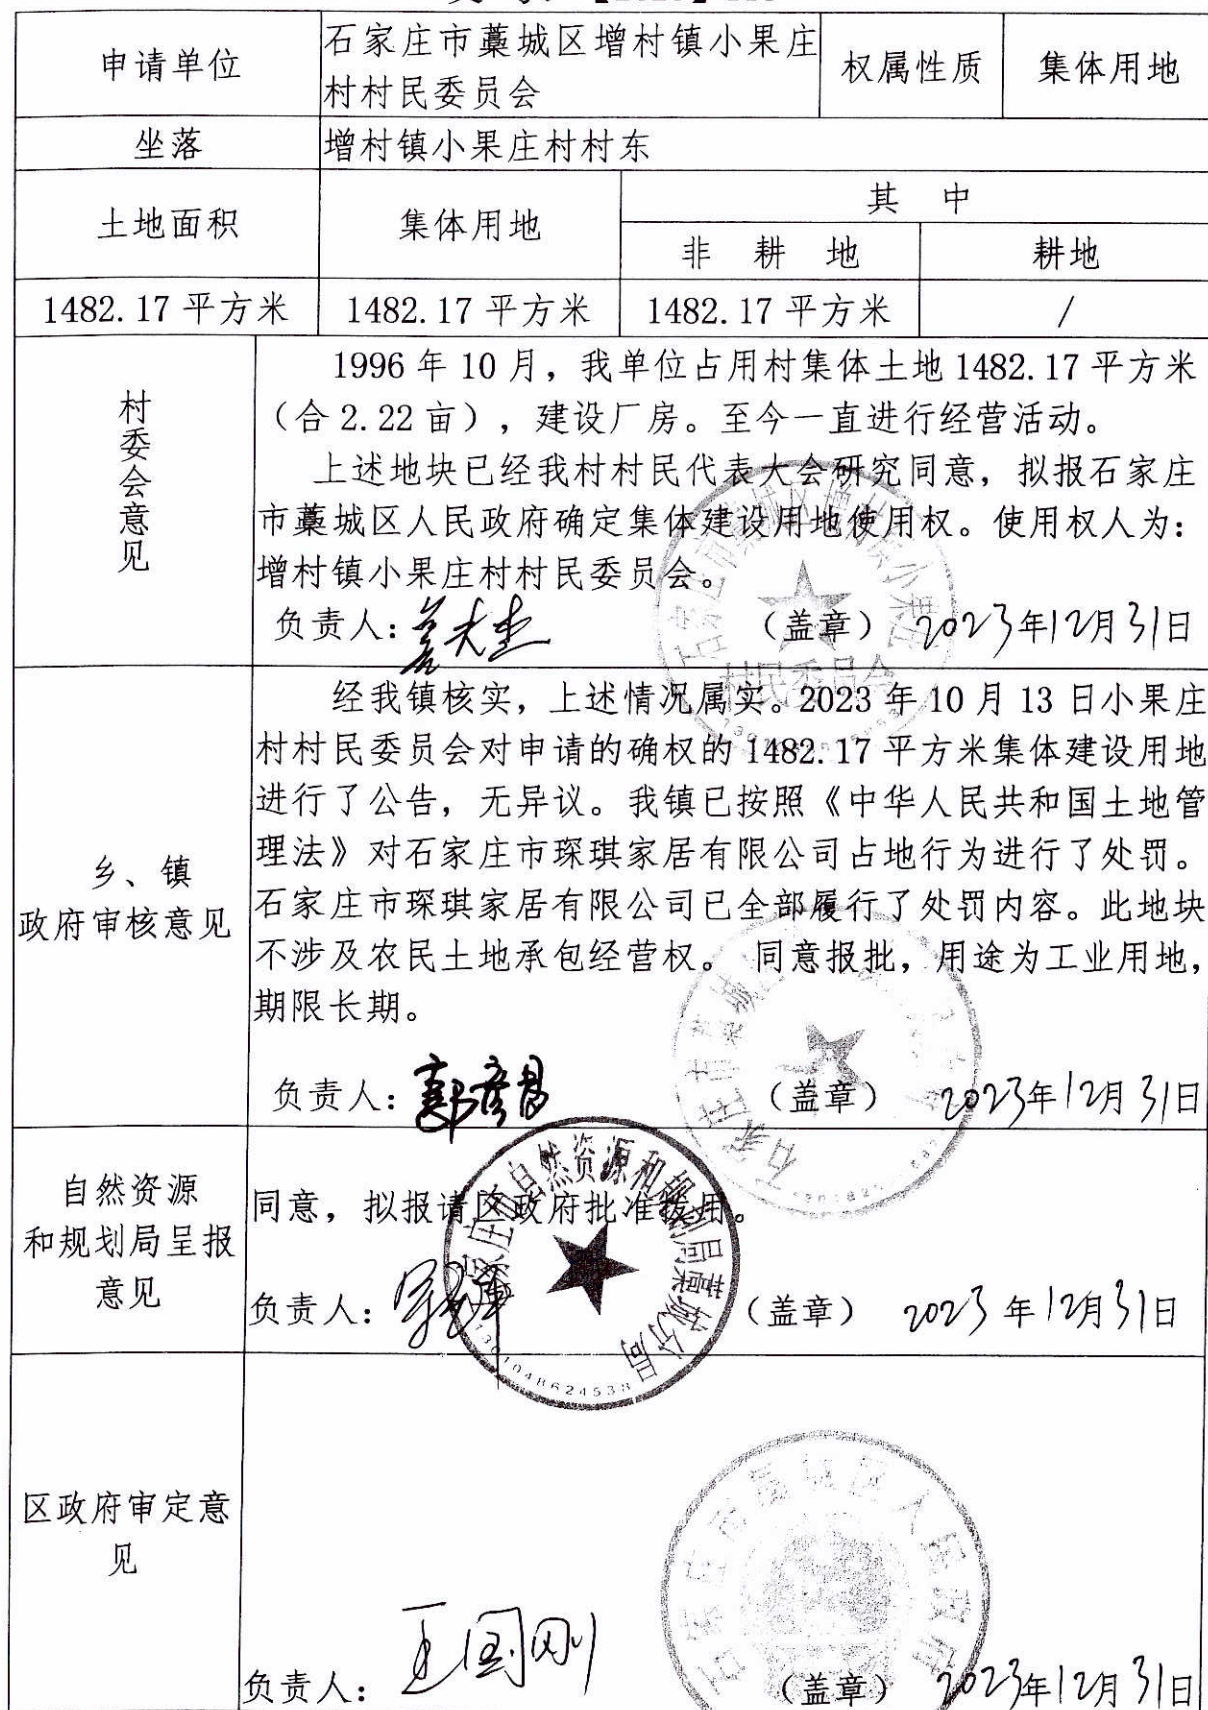 申请单位
石家庄市藁城区增村镇小果庄
村村民委员会
权属性质
集体用地
坐落
增村镇小果庄村村东
土地面积
集体用地
其 中
非 耕 地
耕地
1482.17 平方米
1482.17 平方米
1482.17 平方米
/
村委会意见
1996 年 10 月，我单位占用村集体土地 1482.17 平方米
（合 2.22 亩），建设厂房。至今一直进行经营活动。
上述地块已经我村村民代表大会研究同意，拟报石家庄
市藁城区人民政府确定集体建设用地使用权。使用权人为：
增村镇小果庄村村民委员会。
负责人：
（盖章） 2023年12月31日
村民委员会
乡、镇
政府审核意见
经我镇核实，上述情况属实。2023 年 10 月 13 日小果庄
村村民委员会对申请的确权的 1482.17 平方米集体建设用地
进行了公告，无异议。我镇已按照《中华人民共和国土地管
理法》对石家庄市琛琪家居有限公司占地行为进行了处罚。
石家庄市琛琪家居有限公司已全部履行了处罚内容。此地块
不涉及农民土地承包经营权。 同意报批，用途为工业用地，
期限长期。
负责人：
（盖章） 2023年12月31日
自然资源
和规划局呈报
意见
同意，拟报请区政府批准拨用。
负责人：
（盖章） 2023年12月31日
石家庄市自然资源和规划局藁城分局
1301048624538
区政府审定意
见
石家庄市藁城区人民政府
负责人：王国刚
（盖章） 2023年12月31日